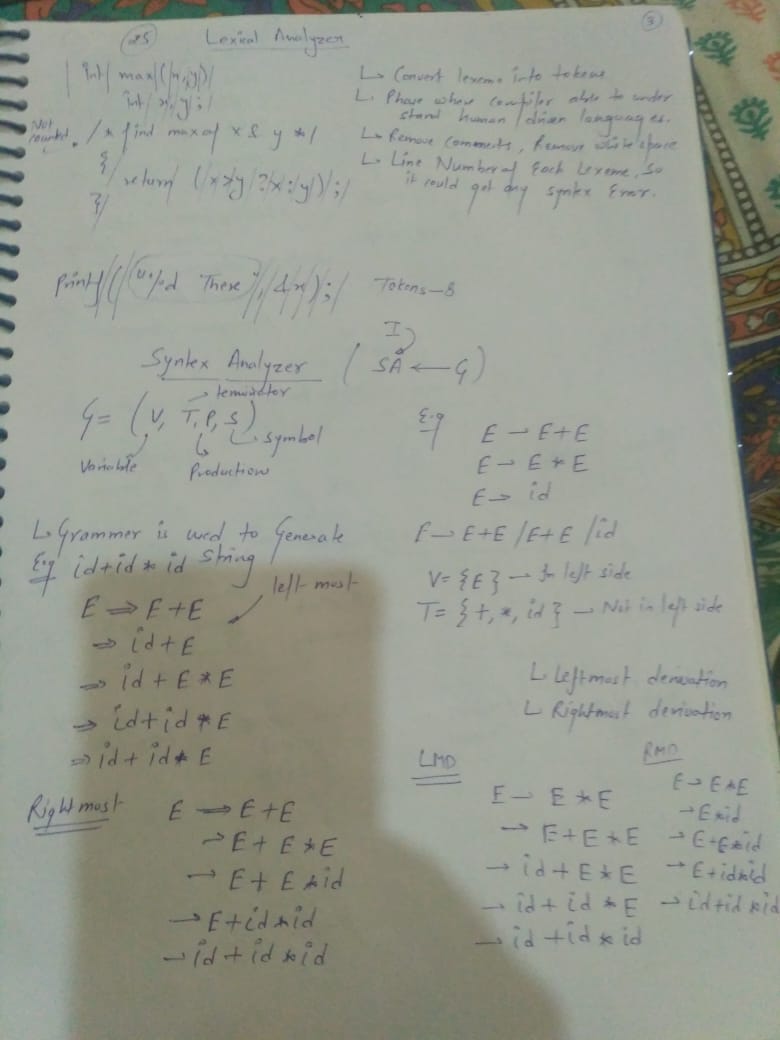 3
25
Lexical Analyzer
| int | max | ( | x, | y | ) |
int | x, | y | ; |
Not counted. / * find max of x & y * /
{ /
return / ( / x > y / ? / x : / y / ) / ; /
} /
↳ Convert lexeme into tokens
↳ Phase where compiler able to under
stand human / driven languages.
↳ Remove comments, Remove white space
↳ Line Number of Each Lexeme, So
it could get any syntex Error.
Printf / ( / "%d There" / , / &x / ) ; / Tokens - 8
Syntex Analyzer ( SA ← G )
I
G = ( V, T, P, S )
Variable
Production
symbol
E.g
E → E+E
E → E * E
E → id
E → E+E / E+E / id
V = {E} → In left side
T = {+, *, id} → Not in left side
↳ Grammer is used to Generate
String
Eg id+id * id
left most
E ⇒ E+E
⇒ id+E
⇒ id + E * E
⇒ id+id * E
⇒ id + id * E
↳ Leftmost derivation
↳ Rightmost derivation
Rightmost
E ⇒ E+E
→ E + E * E
→ E + E * id
→ E+id * id
→ id + id * id
LMD
E → E * E
→ E+E * E
→ id + E * E
→ id + id * E
→ id + id * id
RMD
E → E * E
→ E * id
→ E+E * id
→ E+id * id
→ id+id * id